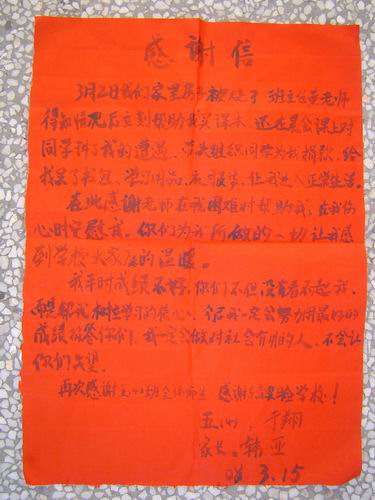 感谢信
3月2日我们家里房子被烧了 班主任黄老师
得知情况后立刻帮助我买课本，还在晨会课上对
同学讲了我的遭遇，带头组织同学为我捐款，给
我买了书包、学习用品、衣服等，让我进入正常生活。
在此感谢老师在我困难时帮助我，在我伤
心时安慰我。你们为我所做的一切让我感
到学校大家庭的温暖。
我平时成绩不好，你们不但没有看不起我，
而是帮我树立学习的信心。但我一定会努力用最好的
成绩报答你们，我一定会做对社会有用的人，不会让
你们失望。
再次感谢五(4)班全体师生 感谢实验学校！
五(4)：于翔
家长：韩亚
08 3.15